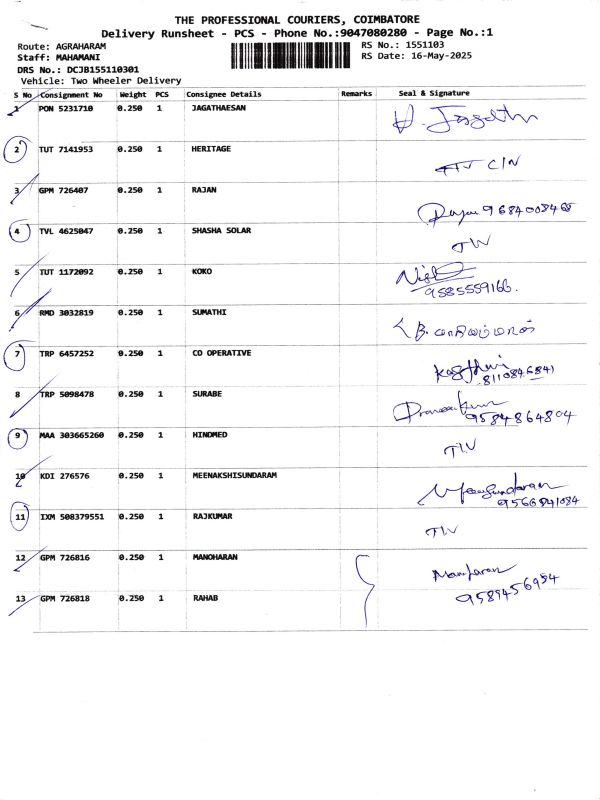 THE PROFESSIONAL COURIERS, COIMBATORE
Delivery Runsheet - PCS - Phone No.:9047080280 - Page No.:1
Route: AGRAHARAM
RS No.: 1551103
Staff: MAHAMANI
RS Date: 16-May-2025
DRS No.: DCJB155110301
Vehicle: Two Wheeler Delivery
S No Consignment No Weight PCS Consignee Details Remarks Seal & Signature
1 PON 5231710 0.250 1 JAGATHAESAN
2 TUT 7141953 0.250 1 HERITAGE
3 GPM 726407 0.250 1 RAJAN
9684008468
4 TVL 4625047 0.250 1 SHASHA SOLAR
5 TUT 1172092 0.250 1 KOKO
9585559166.
6 RMD 3032819 0.250 1 SUMATHI
7 TRP 6457252 0.250 1 CO OPERATIVE
8110846841
8 TRP 5098478 0.250 1 SURABE
9584864804
9 MAA 303665260 0.250 1 HINDMED
10 KDI 276576 0.250 1 MEENAKSHISUNDARAM
9566841084
11 IXM 508379551 0.250 1 RAJKUMAR
12 GPM 726816 0.250 1 MANOHARAN
13 GPM 726818 0.250 1 RAHAB
9589456984